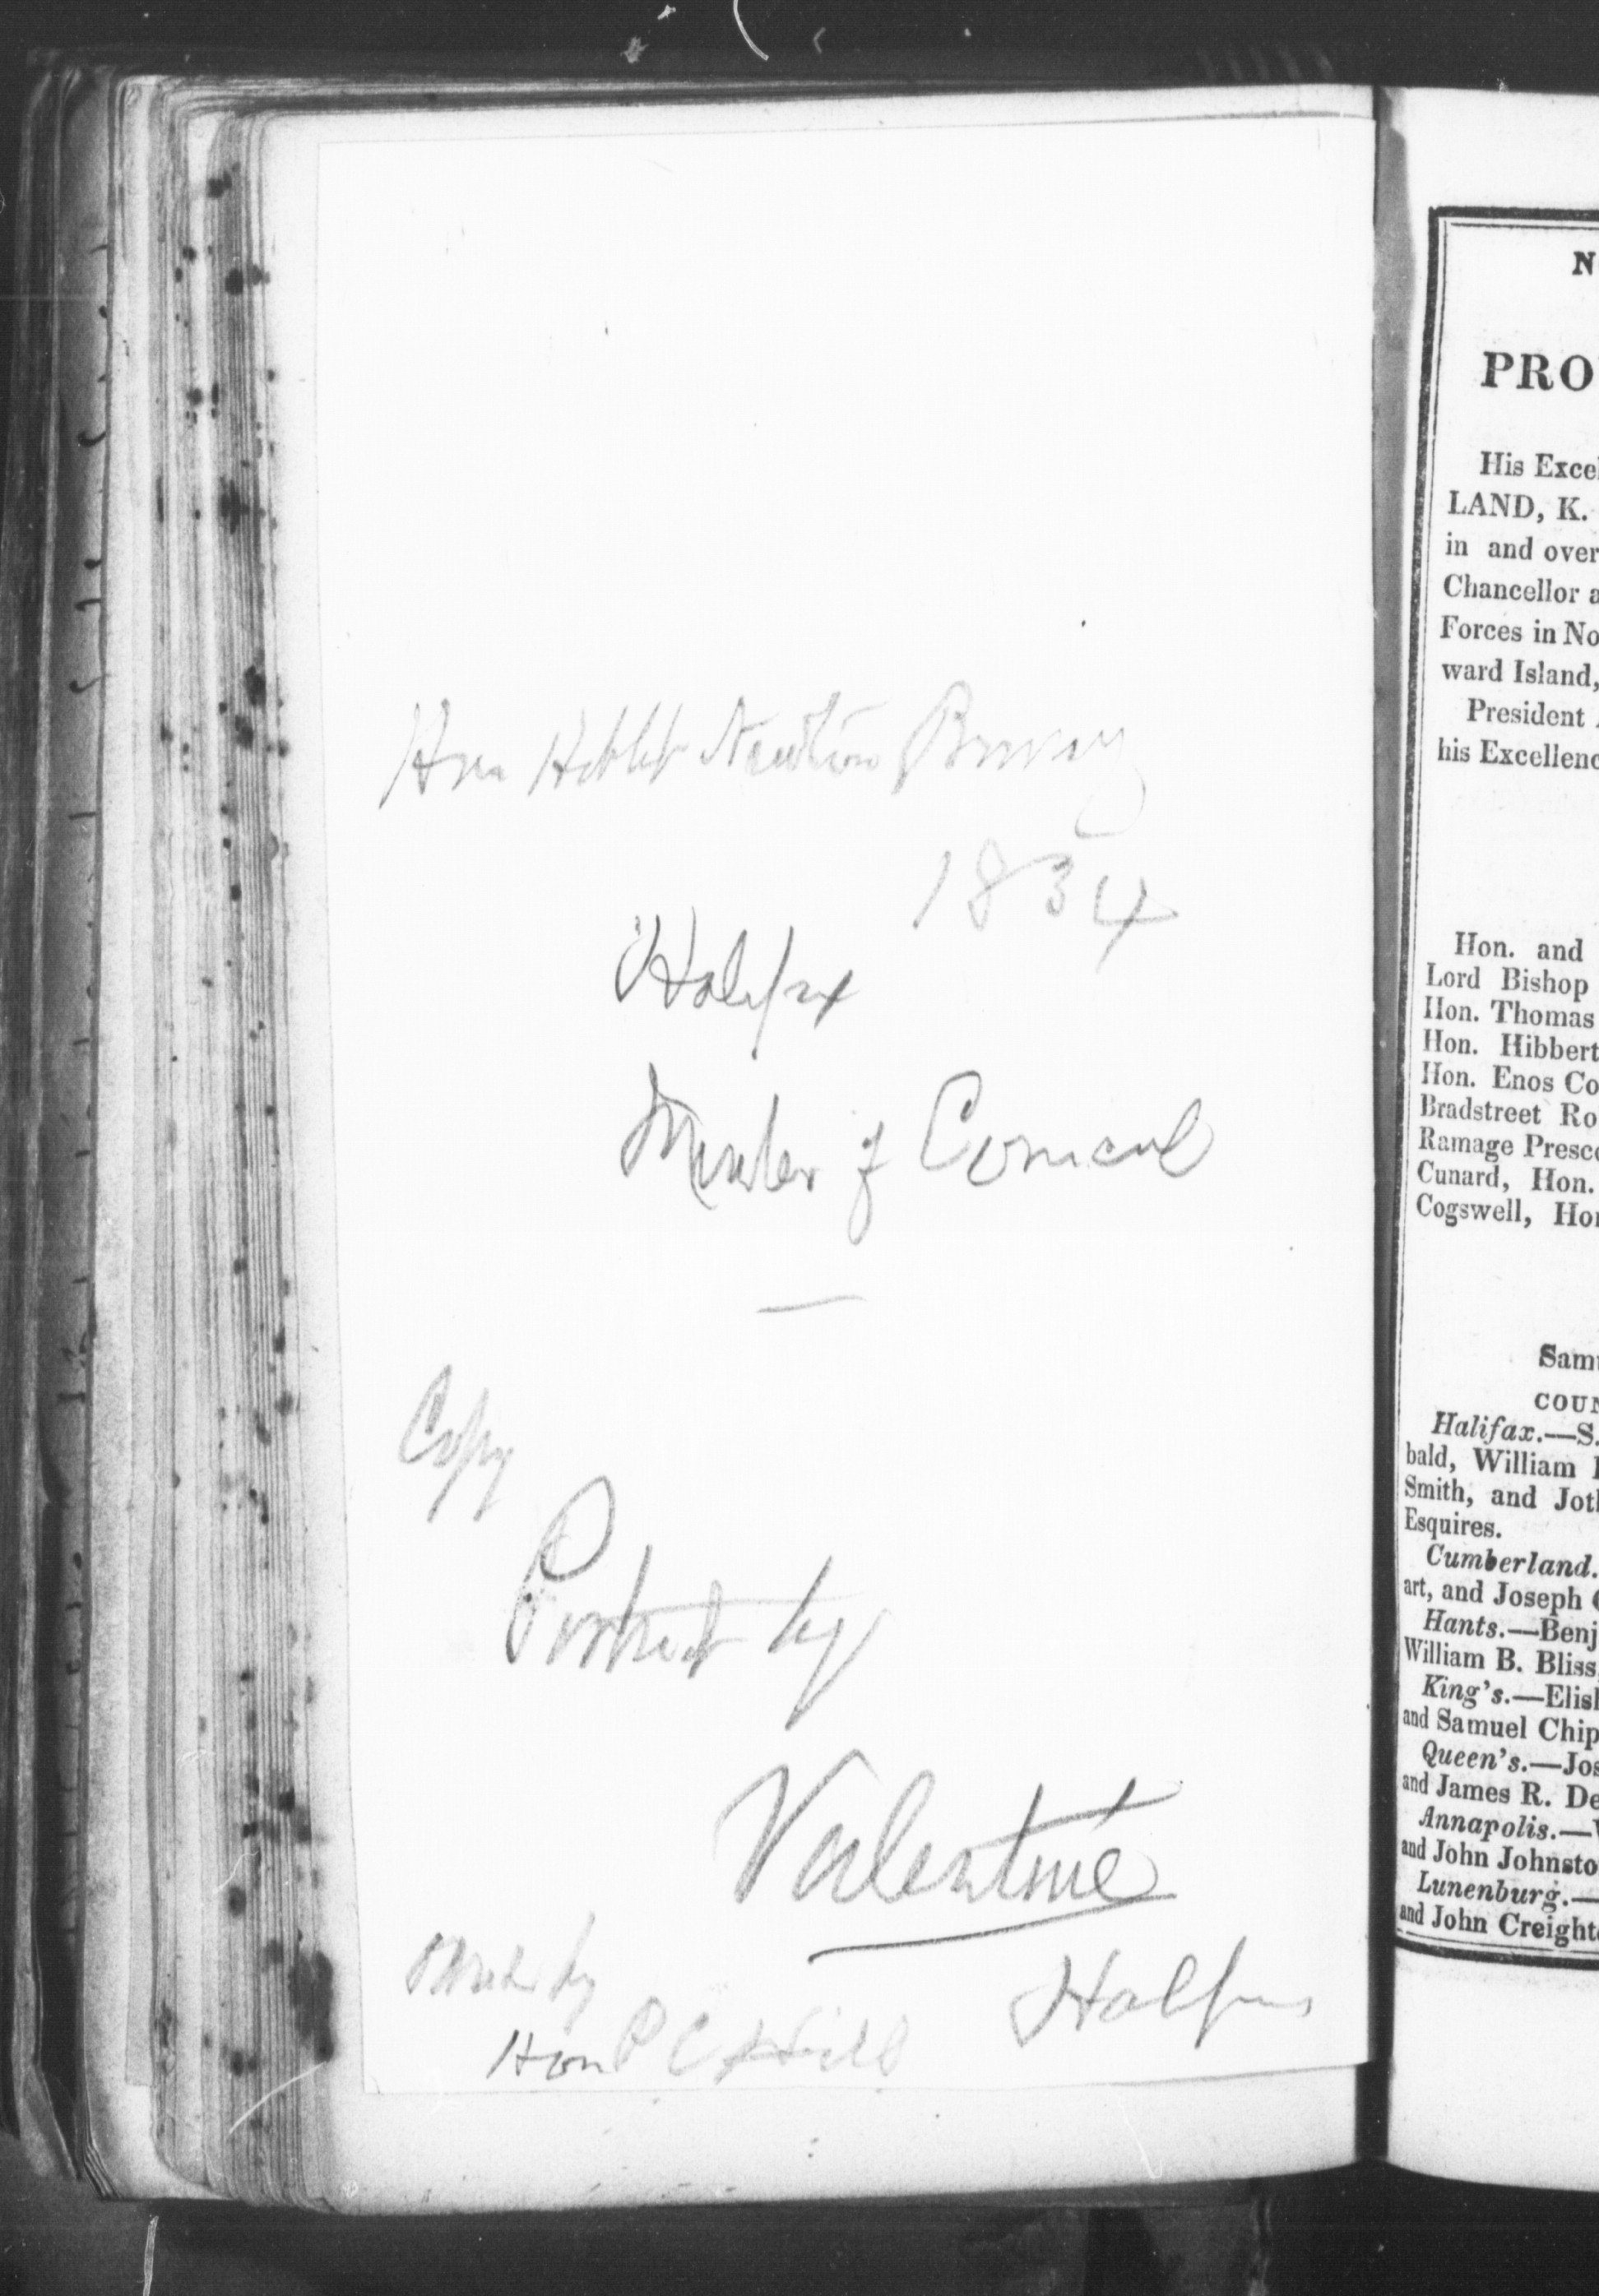 Hon Hibbt Newton Binney
1834
Halifax
Member of Council
Copy
Portrait by
Valentine
Halifax
by
Hon P C Hill
N
PRO
His Excel
LAND, K.
in and over
Chancellor a
Forces in No
ward Island,
President
his Excellenc
Hon. and
Lord Bishop
Hon. Thomas
Hon. Hibbert
Hon. Enos Co
Bradstreet Ro
Ramage Presco
Cunard, Hon.
Cogswell, Hon
Samu
COUN
Halifax.—S.
bald, William
Smith, and Joth
Esquires.
Cumberland.
art, and Joseph
Hants.—Benj
William B. Bliss,
King's.—Elish
and Samuel Chip
Queen's.—Jos
and James R. De
Annapolis.—
and John Johnsto
Lunenburg.—
and John Creight